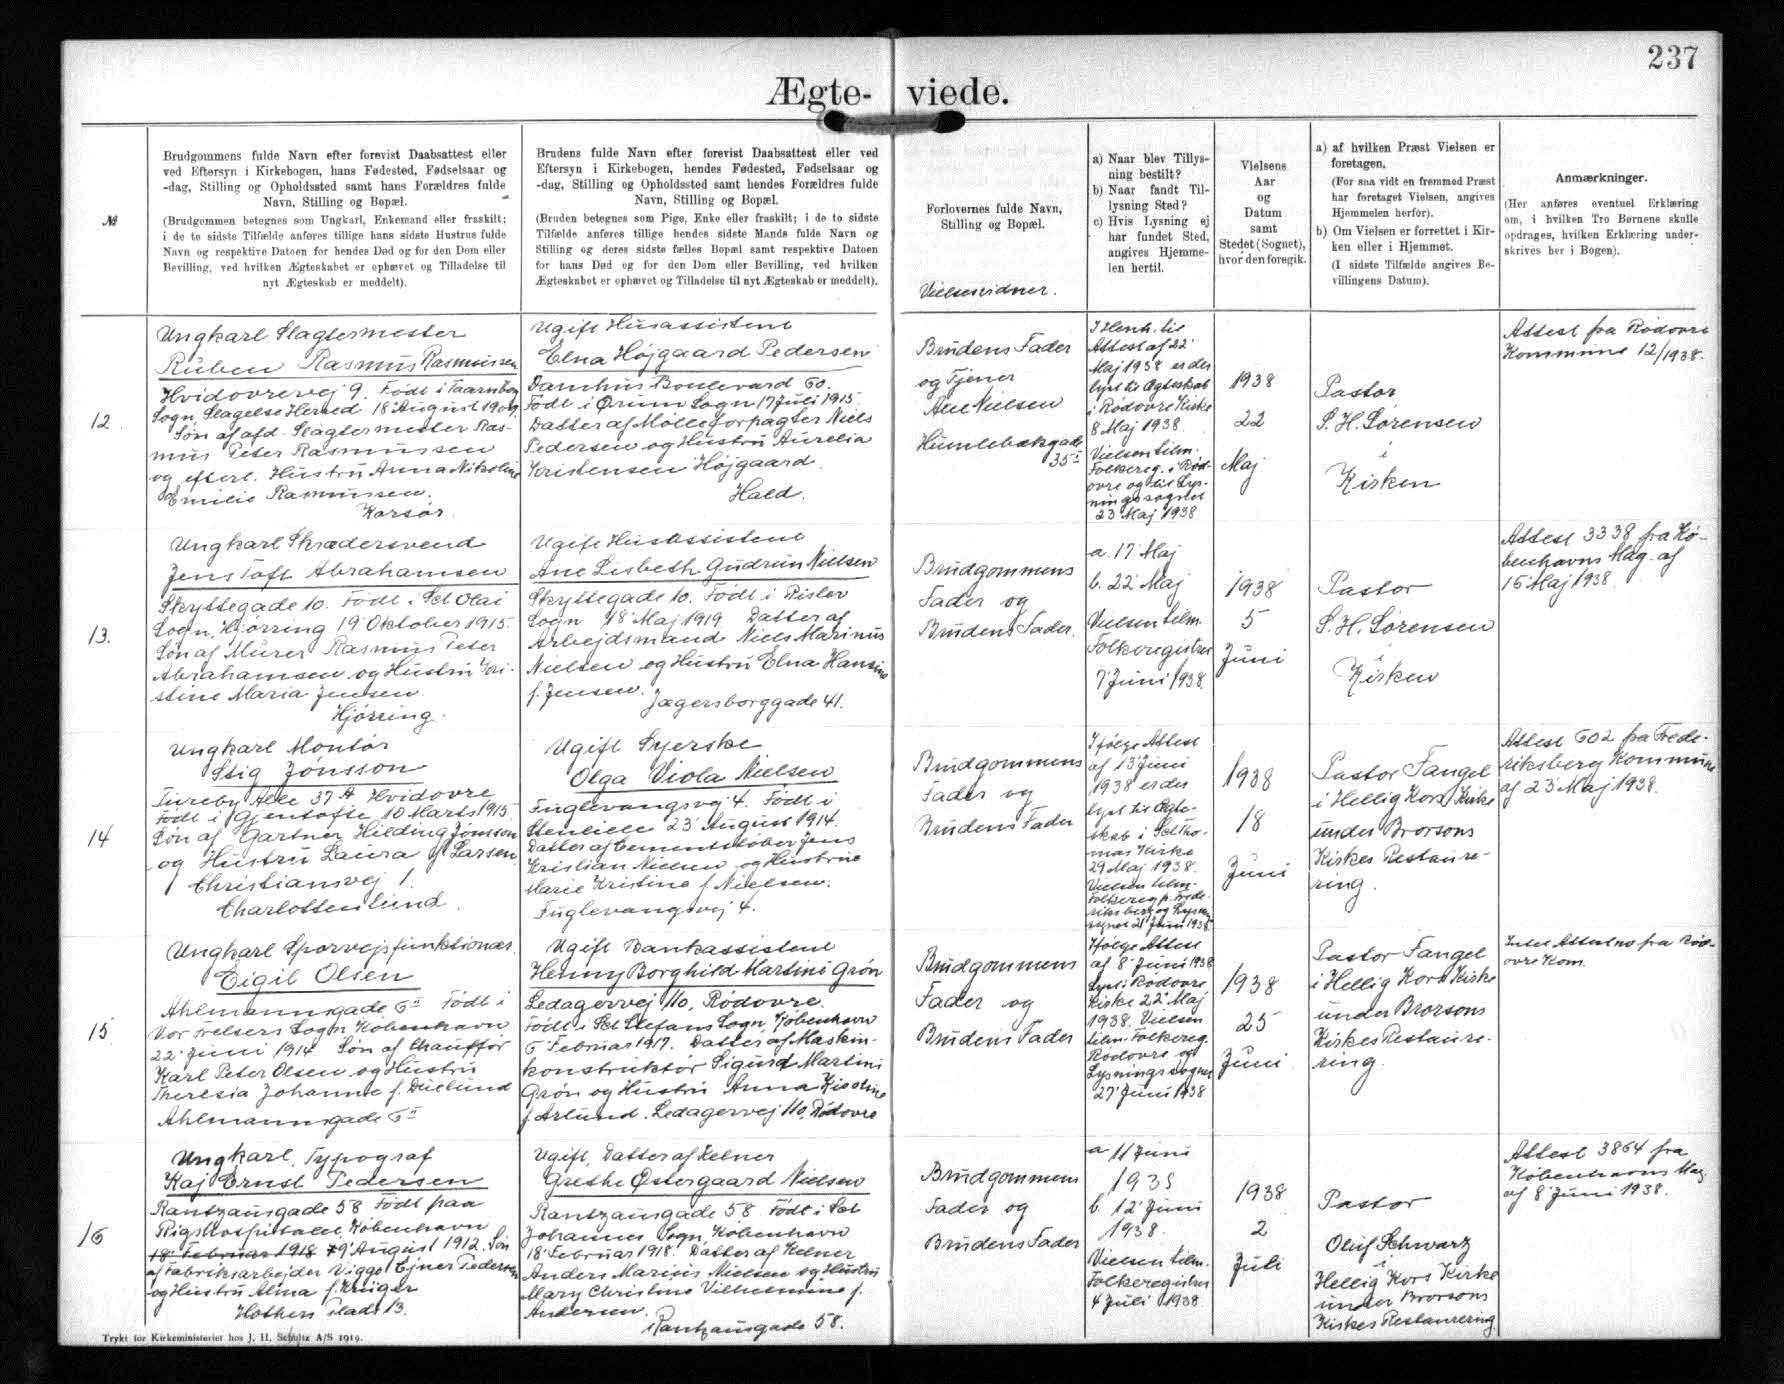 237
Ægte- viede.
№
Brudgommens fulde Navn efter forevist Daabsattest eller
ved Eftersyn i Kirkebogen, hans Fødested, Fødselsaar og
-dag, Stilling og Opholdssted samt hans Forældres fulde
Navn, Stilling og Bopæl.
(Brudgommen betegnes som Ungkarl, Enkemand eller fraskilt;
i de to sidste Tilfælde anføres tillige hans sidste Hustrus fulde
Navn og respektive Datoen for hendes Død og for den Dom eller
Bevilling, ved hvilken Ægteskabet er ophævet og Tilladelse til
nyt Ægteskab er meddelt).
Brudens fulde Navn efter forevist Daabsattest eller ved
Eftersyn i Kirkebogen, hendes Fødested, Fødselsaar og
-dag, Stilling og Opholdssted samt hendes Forældres fulde
Navn, Stilling og Bopæl.
(Bruden betegnes som Pige, Enke eller fraskilt; i de to sidste
Tilfælde anføres tillige hendes sidste Mands fulde Navn og
Stilling og deres sidste fælles Bopæl samt respektive Datoen
for hans Død og for den Dom eller Bevilling, ved hvilken
Ægteskabet er ophævet og Tilladelse til nyt Ægteskab er meddelt).
Forlovernes fulde Navn,
Stilling og Bopæl.
Vielsesvidner.
a) Naar blev Tillys-
ning bestilt?
b) Naar fandt Til-
lysning Sted?
c) Hvis Lysning ej
har fundet Sted,
angives Hjemme-
len hertil.
Vielsens
Aar
og
Datum
samt
Stedet (Sognet),
hvor den foregik.
a) af hvilken Præst Vielsen er
foretagen.
(For saa vidt en fremmed Præst
har foretaget Vielsen, angives
Hjemmelen herfor).
b) Om Vielsen er forrettet i Kir-
ken eller i Hjemmet.
(I sidste Tilfælde angives Be-
villingens Datum).
Anmærkninger.
(Her anføres eventuel Erklæring
om, i hvilken Tro Børnene skulle
opdrages, hvilken Erklæring under-
skrives her i Bogen).
12
Ungkarl Slagtermester
Ruben Rasmus Rasmussen
Hvidovrevej 9. Født i Taarnborg
Sogn, Slagelse Herred 18' August 1909.
Søn af afd. Slagtermester Ras-
mus Peter Rasmussen
og efterl. Hustru Anna Nikoline
Emilie Rasmussen.
Korsør.
Ugift Husassistent
Elna Højgaard Pedersen
Damhus Boulevard 60.
Født i Ørum Sogn 17 Juli 1915.
Datter af Mølleforpagter Niels
Pedersen og Hustru Aurelia
Kristensen Højgaard.
Hald.
Brudens Fader
og Tjener
Nielsen
Humlebækgade
35 I
I Henh. til
Attest af 22'
Maj 1938 er der
lyst til Ægteskab
i Rødovre Kirke
8 Maj 1938.
Vielsen tilm.
Folkereg. i Rød-
ovre og til Lys-
ningssognet
23 Maj 1938
1938
22
Maj
Pastor
S. H. Sørensen
i
Kirken
Attest fra Rødovre
Kommune 12/1938.
13.
Ungkarl Skrædersvend
Jens Toft Abrahamsen
Skyttegade 10. Født i Sct Olai
Sogn, Hjørring 19 Oktober 1915.
Søn af Murer Rasmus Peter
Abrahamsen og Hustru Kri-
stine Maria Jensen.
Hjørring.
Ugift Husassistent
Ane Lisbeth Gudrun Nielsen
Skyttegade 10. Født i Rislev
Sogn 18' Maj 1919 Datter af
Arbejdsmand Niels Marinus
Nielsen og Hustru Elna Hansine
f. Jensen. Jægersborggade 41.
Brudgommens
Fader og
Brudens Fader.
a. 17 Maj
b. 22' Maj
Vielsen tilm.
Folkeregistret
7' Juni 1938.
1938
5
Juni
Pastor
S. H. Sørensen
i
Kirken
Attest 3338 fra Kø-
benhavns Mag. af
16 Maj 1938.
14
Ungkarl Montør
Stig Jönsson
Tureby Alle 37 A Hvidovre
Født i Gjentofte 10 Marts 1915.
Søn af Gartner Hilding Jönsson
og Hustru Laura f Larsen
Christiansvej 1.
Charlottenlund.
Ugift Syerske
Olga Viola Nielsen
Fuglevangsvej 4. Født i
Stenlille 23' August 1914.
Datter af Cementstøber Jens
Kristian Nielsen og Hustrue
Marie Kristine f. Nielsen.
Fuglevangsvej 4.
Brudgommens
Fader og
Brudens Fader
Ifølge Attest
af 13' Juni
1938 er der
lyst til Ægte-
skab i Sct Tho-
mas Kirke
29 Maj 1938.
Vielsen tilm.
Folkereg. p. Frede-
riksberg og Lysn.
sognet 21' Juni 1938.
1938
18
Juni
Pastor Fangel
i Hellig Kors Kirke
under Brorsons
Kirkes Restaure-
ring.
Attest 602 fra Frede-
riksberg Kommune
af 23' Maj 1938.
15
Ungkarl Sporvejsfunktionær
Eigil Olsen
Ahlmannsgade 6 II Født i
Vor Frelsers Sogn København
22' Juni 1914 Søn af Chauffør
Karl Peter Olsen og Hustru
Theresia Johanne f. Dielund
Ahlmannsgade 6 II
Ugift Bankassistent
Henny Borghild Martini Grøn
Ledagervej 110, Rødovre.
Født i Sct Stefans Sogn, København
6 Februar 1917. Datter af Maskin-
konstruktør Sigurd Martini
Grøn og Hustru Anna Kirstine
f. Arlund. Ledagervej 110, Rødovre
Brudgommens
Fader og
Brudens Fader
Ifølge Attest
af 8' Juni 1938
lyst i Rødovre
Kirke 22' Maj
1938. Vielsen
tilm. Folkereg.
Rødovre og
Lysningssognet
27' Juni 1938
1938
25
Juni
Pastor Fangel
i Hellig Kors Kirke
under Brorsons
Kirkes Restaure-
ring.
Attest fra Rød-
ovre Kom.
16
Ungkarl, Typograf
Kaj Ernst Pedersen
Rantzausgade 58 Født paa
Rigshospitalet, København
18' Februar 1918 9' August 1912. Søn
af Fabriksarbejder Viggo Ejner Pedersen
og Hustru Alma f. Krüger
Hothers Plads 13.
Ugift, Datter af Kelner
Grethe Østergaard Nielsen
Rantzausgade 58 Født i Sct
Johannes Sogn, København
18' Februar 1918. Datter af Kelner
Anders Marius Nielsen og Hustru
Mary Christine Vilhelmine f.
Andersen.
Rantzausgade 58.
Brudgommens
Fader og
Brudens Fader
a 11 Juni
1938
b. 12' Juni
1938.
Vielsen tilm.
Folkeregistret
4 Juli 1938
1938
2
Juli
Pastor
Oluf Schwarz
i
Hellig Kors Kirke
under Brorsons
Kirkes Restaurering
Attest 3864 fra
Københavns Mag.
af 8' Juni 1938.
Trykt for Kirkeministeriet hos J. H. Schultz A/S 1919.